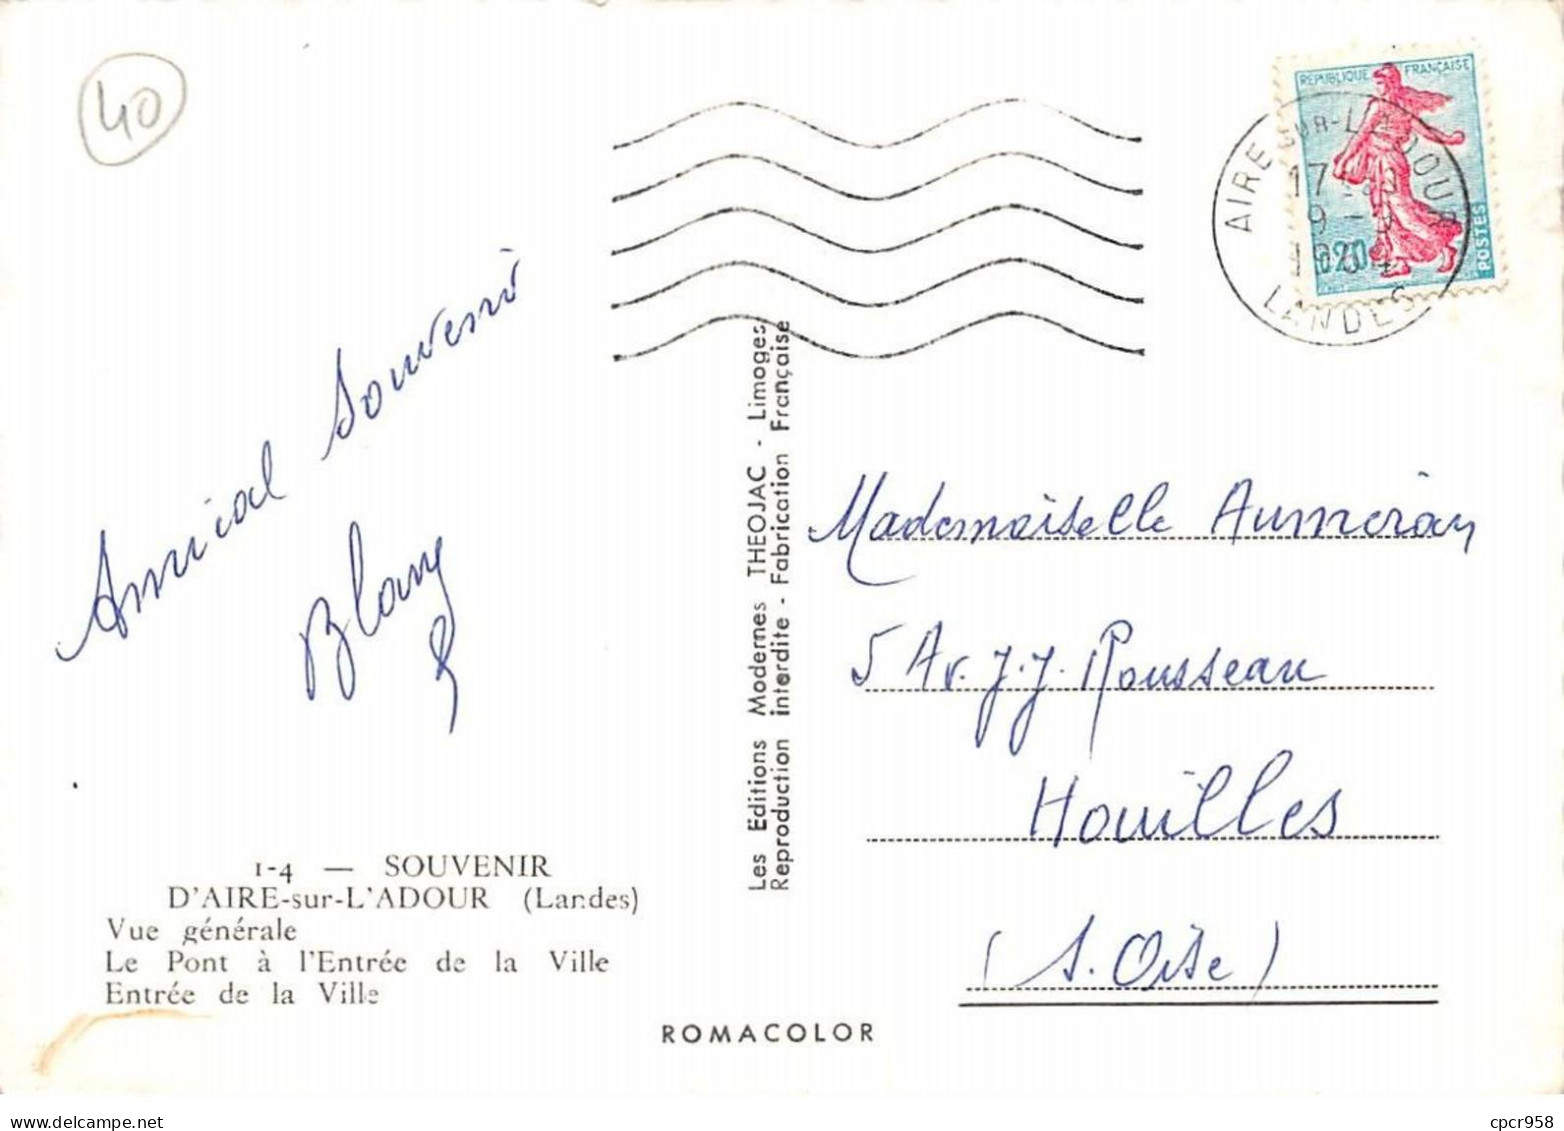 40
RÉPUBLIQUE FRANÇAISE
0,20
POSTES
AIRE-SUR-L'ADOUR
17
9 - 9
LANDES
Amical Souvenir
Blanc
Les Editions Modernes THEOJAC - Limoges
Reproduction interdite - Fabrication Française
Mademoiselle Aumeran
5 Av. J.J. Rousseau
Houilles
(S. Oise)
1-4 — SOUVENIR
D'AIRE-sur-L'ADOUR (Landes)
Vue générale
Le Pont à l'Entrée de la Ville
Entrée de la Ville
ROMACOLOR
cpcr958